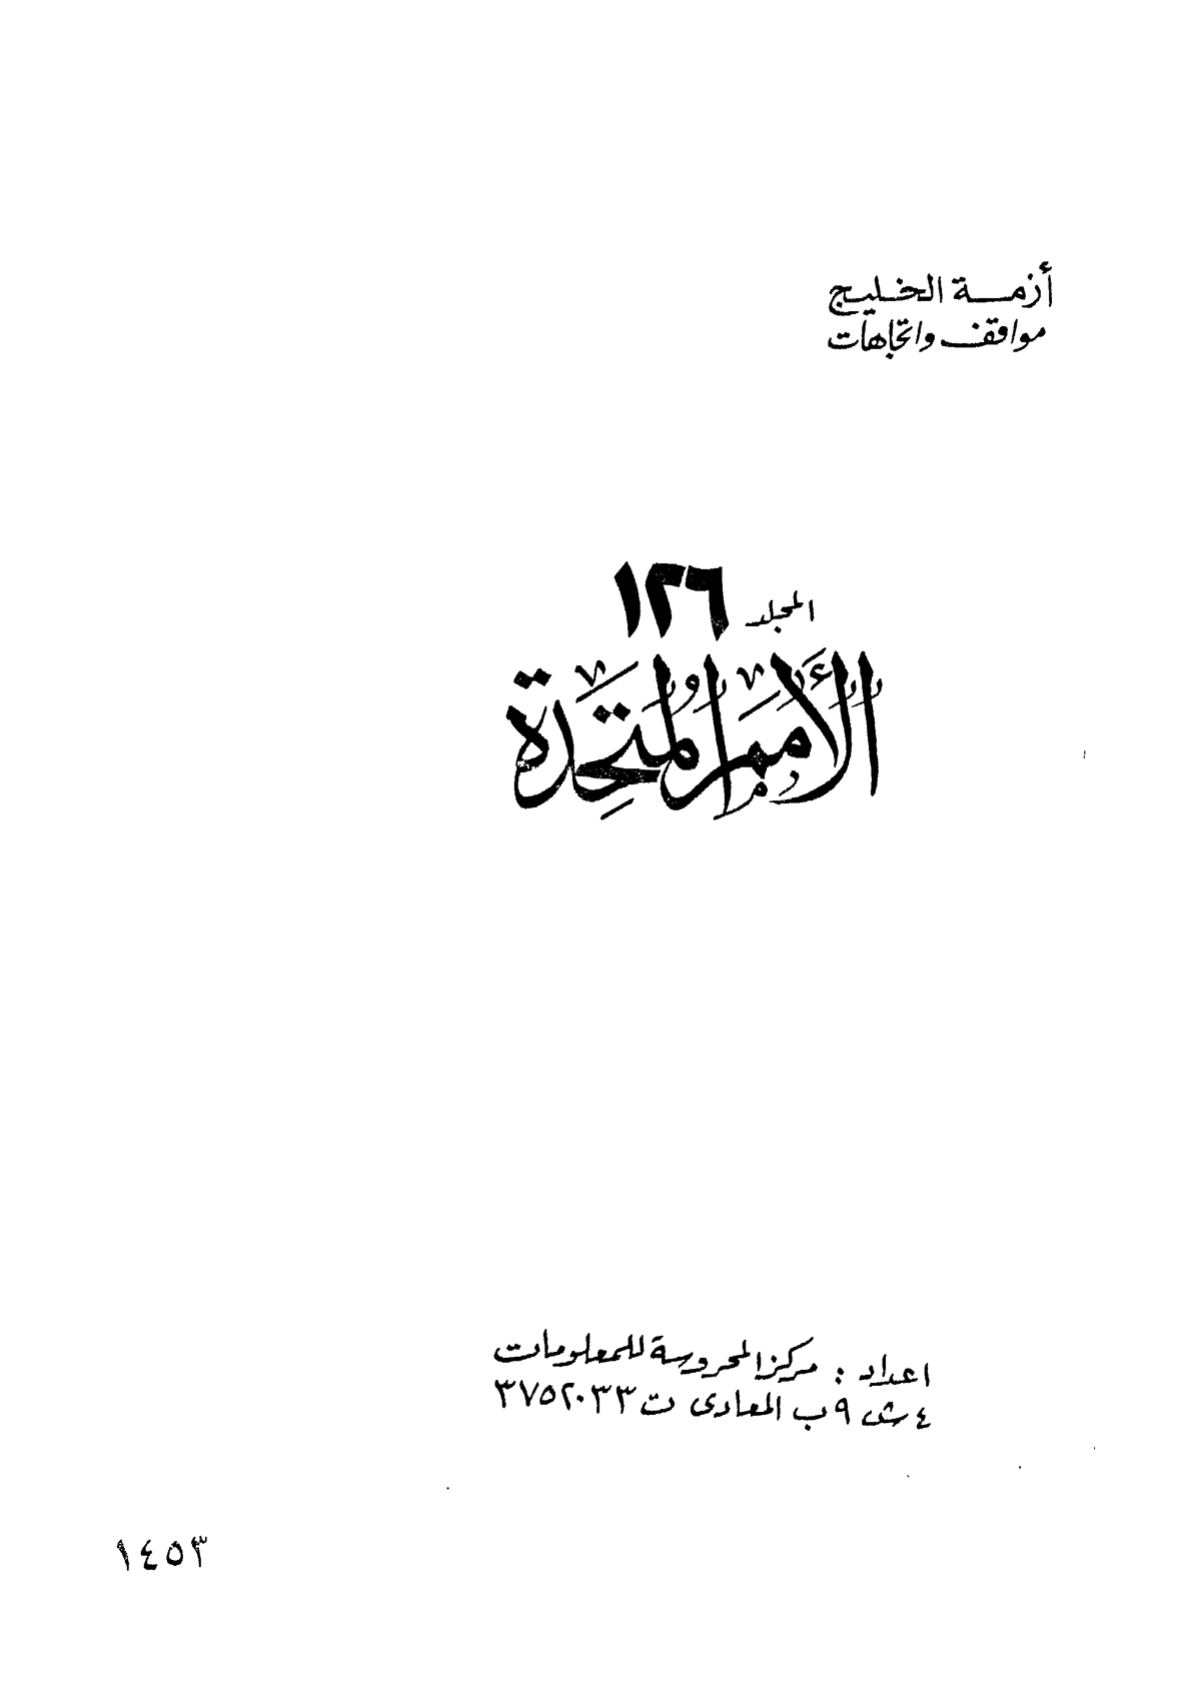 أزمة الخليج
مواقف واتجاهات
المجلد ١٢٦
الأمم المتحدة
اعداد : مركز المحروسة للمعلومات
٤ ش ٩ب المعادى ت ٣٧٥٢٠٣٣
١٤٥٣